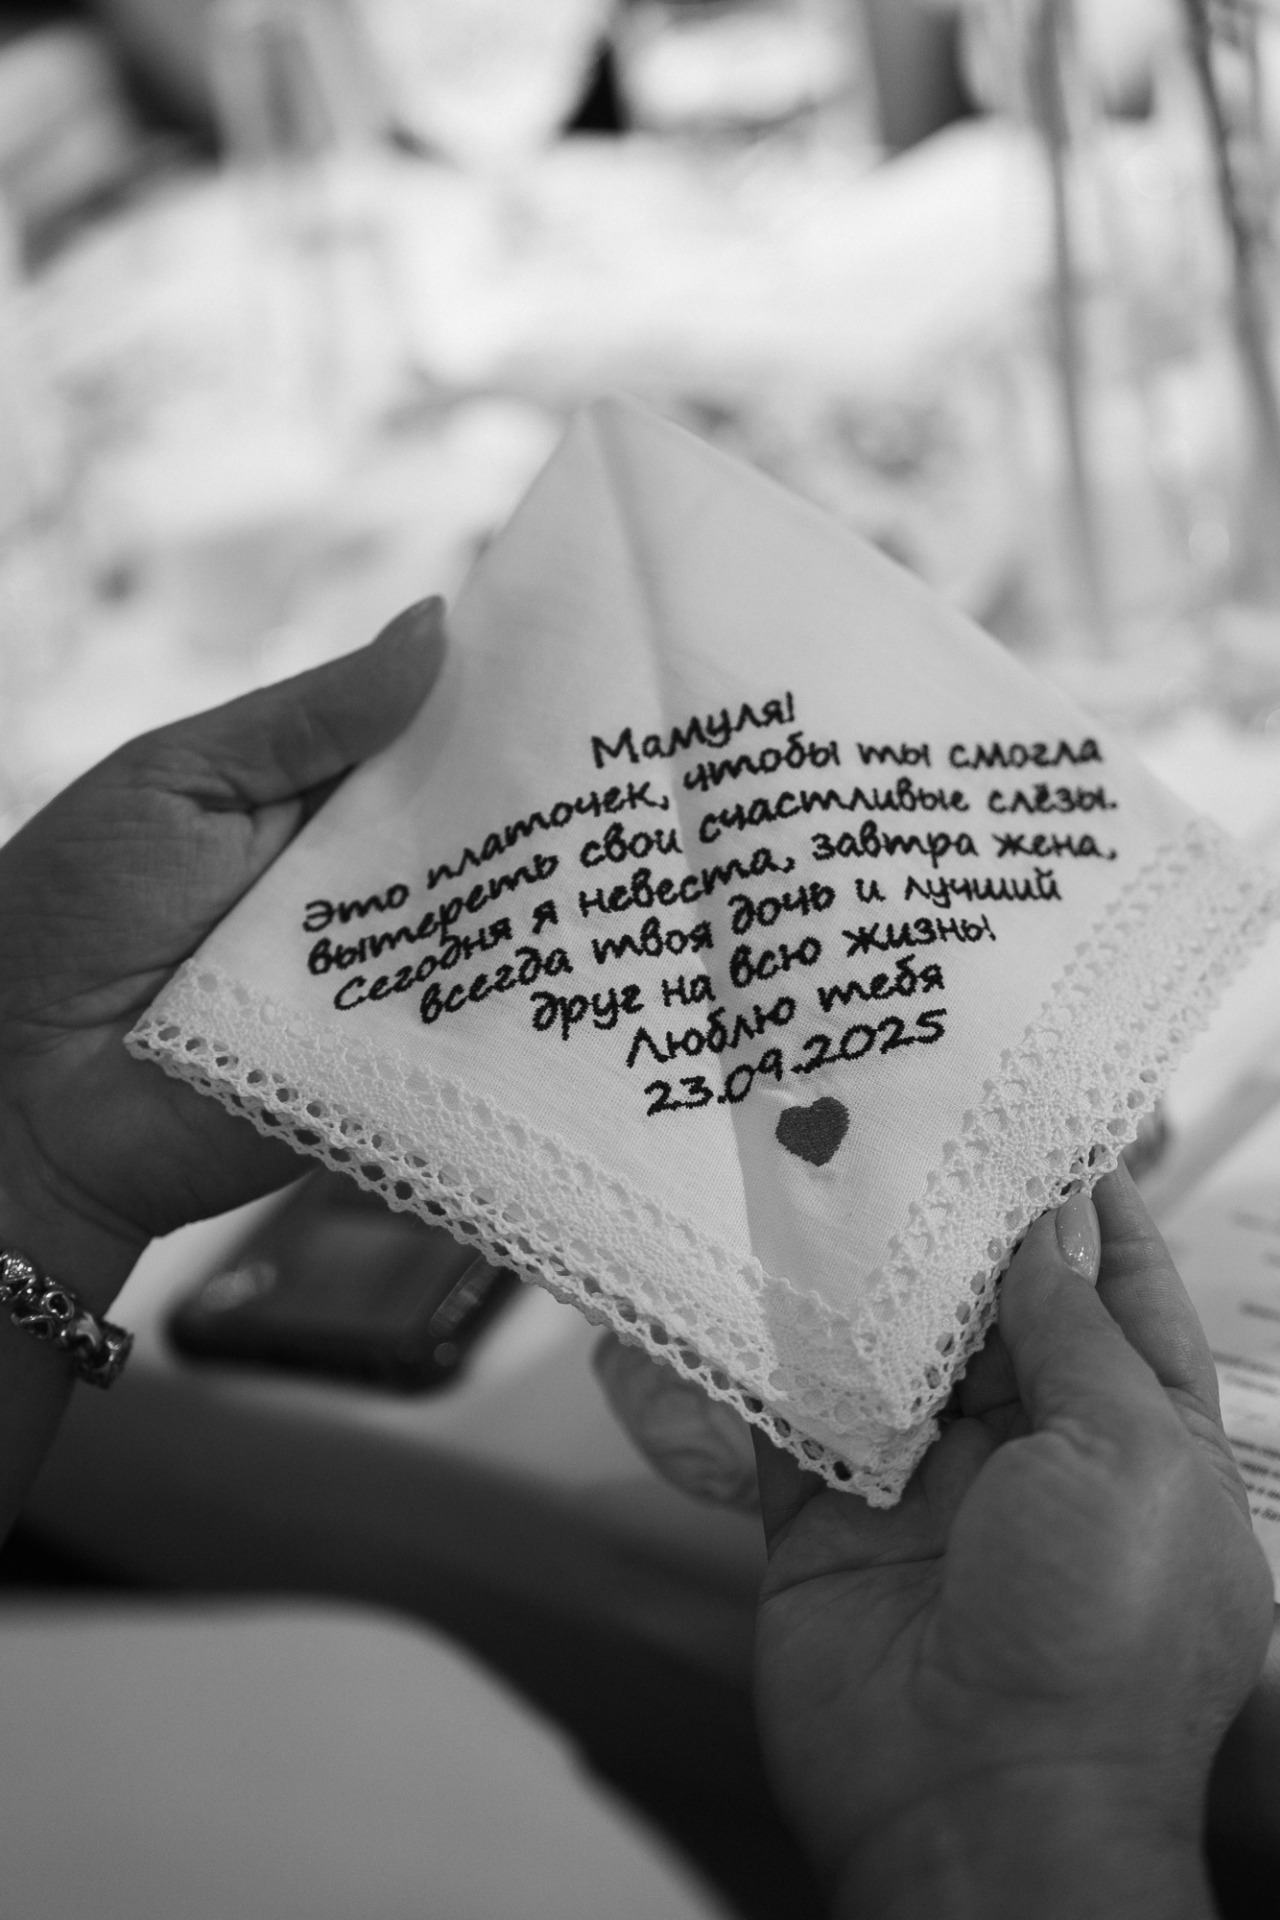 Мамуля!
Это платочек, чтобы ты смогла
вытереть свои счастливые слёзы.
Сегодня я невеста, завтра жена,
всегда твоя дочь и лучший
друг на всю жизнь!
Люблю тебя
23.09.2025